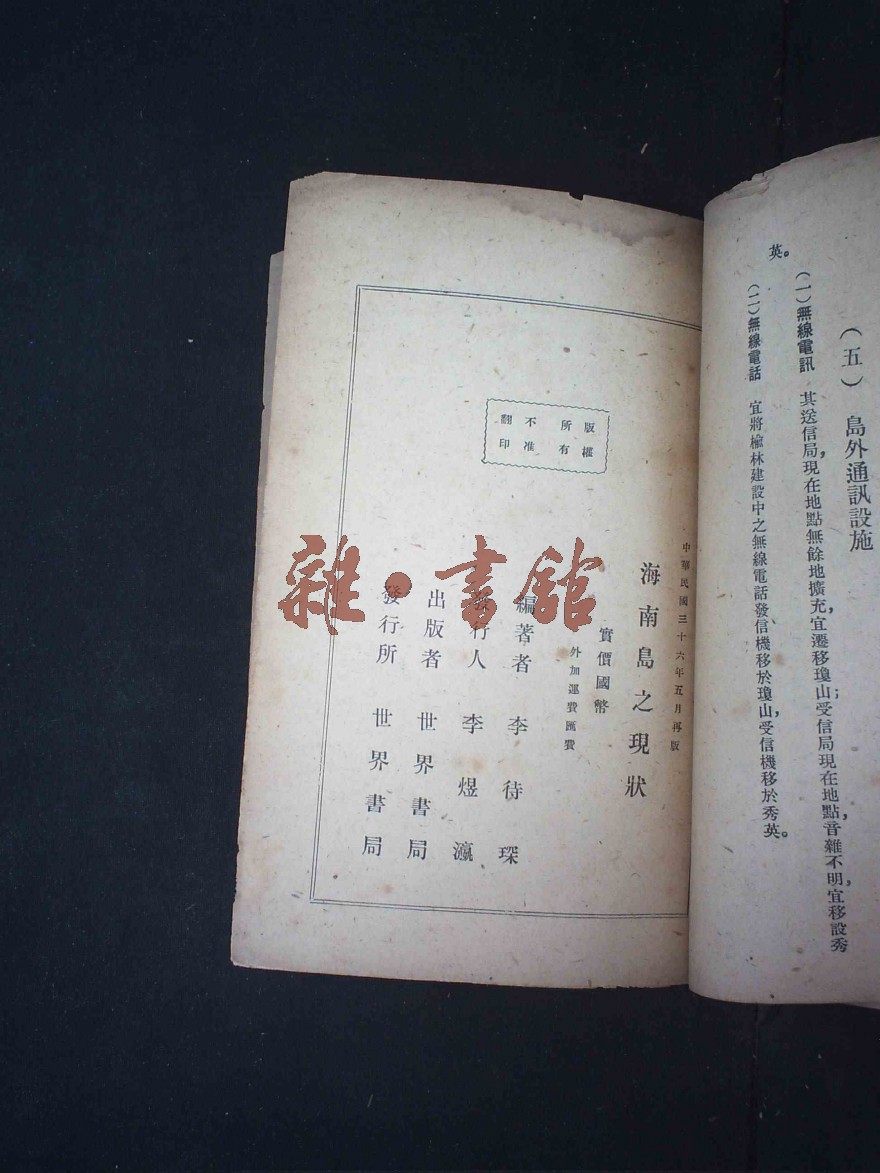 (五) 島外通訊設施
(一)無線電訊 其送信局,現在地點無餘地擴充,宜遷移瓊山;受信局現在地點,音雜不明,宜移設秀
英。
(二)無線電話 宜將榆林建設中之無線電話發信機移於瓊山,受信機移於秀英。
中華民國三十六年五月再版
海南島之現狀
實價國幣
外加運費匯費
版權
所有
不准
翻印
編著者 李待琛
發行人 李煜瀛
出版者 世界書局
發行所 世界書局
雜·書館